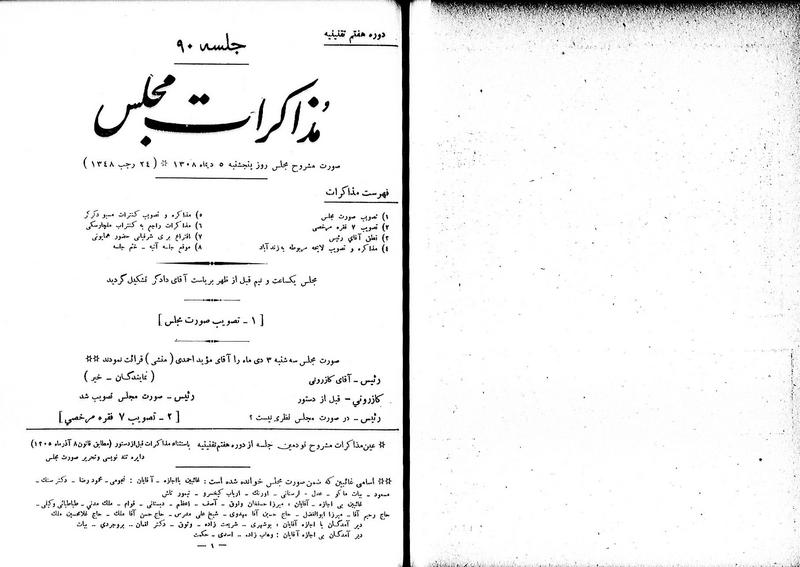 دوره هفتم تقنینیه
جلسه ۹۰
مذاکرات مجلس
صورت مشروح مجلس روز پنجشنبه ۵ دیماه ۱۳۰۸ * ( ۲۴ رجب ۱۳۴۸ )
فهرست مذاکرات
۱) تصویب صورت مجلس
۲) تصویب ۷ فقره مرخصی
۳) نطق آقای رئیس
۴) مذاکره و تصویب لایحه مربوطه به
۵) مذاکره و تصویب کنترات مسیو
۶) مذاکرات راجع به کنترات
۷) اقتراع برای شرفیابی حضور همایونی
۸) موقع جلسه آتیه - ختم جلسه
مجلس یکساعت و نیم قبل از ظهر بریاست آقای دادگر تشکیل گردید
[ ۱ - تصویب صورت مجلس ]
صورت مجلس سه شنبه ۳ دی ماه را آقای مؤید احمدی ( منشی ) قرائت نمودند **
رئیس - آقای کازرونی
کازرونی - قبل از دستور
رئیس - در صورت مجلس نظری نیست ؟
( نمایندگان - خیر )
رئیس - صورت مجلس تصویب شد
[ ۲ - تصویب ۷ فقره مرخصی ]
* عین مذاکرات مشروح نودمین جلسه از دوره هفتم تقنینیه باستثناء مذاکرات قبل از دستور (مطابق قانون ۸ آذرماه ۱۳۰۵)
دایره تند نویسی و تحریر صورت مجلس
** اسامی غائبین که ضمن صورت مجلس خوانده شده است : غائبین بااجازه - آقایان : نجومی - محمود رضا - دکتر سنک -
مسعود - بیات ماکو - عدل - لرستانی - اورنک - ارباب کیخسرو - تیمور تاش
غائبین بی اجازه - آقایان : میرزا حسنخان وثوق - آصف - اعظم - دبستانی - قوام - ملک مدنی - طباطبائی وکیلی -
حاج رحیم آقا - میرزا ابوالفضل - حاج حسین آقا مهدوی - شیخ علی مدرس - حاج حسن آقا ملک - حاج غلامحسین ملک
دیر آمدگان با اجازه آقایان : بوشهری - شریعت زاده - وثوق - دکتر لقمان - بروجردی - بیات
دیر آمدگان بی اجازه آقایان : وهاب زاده - اسدی - حکمت
- ۱ -